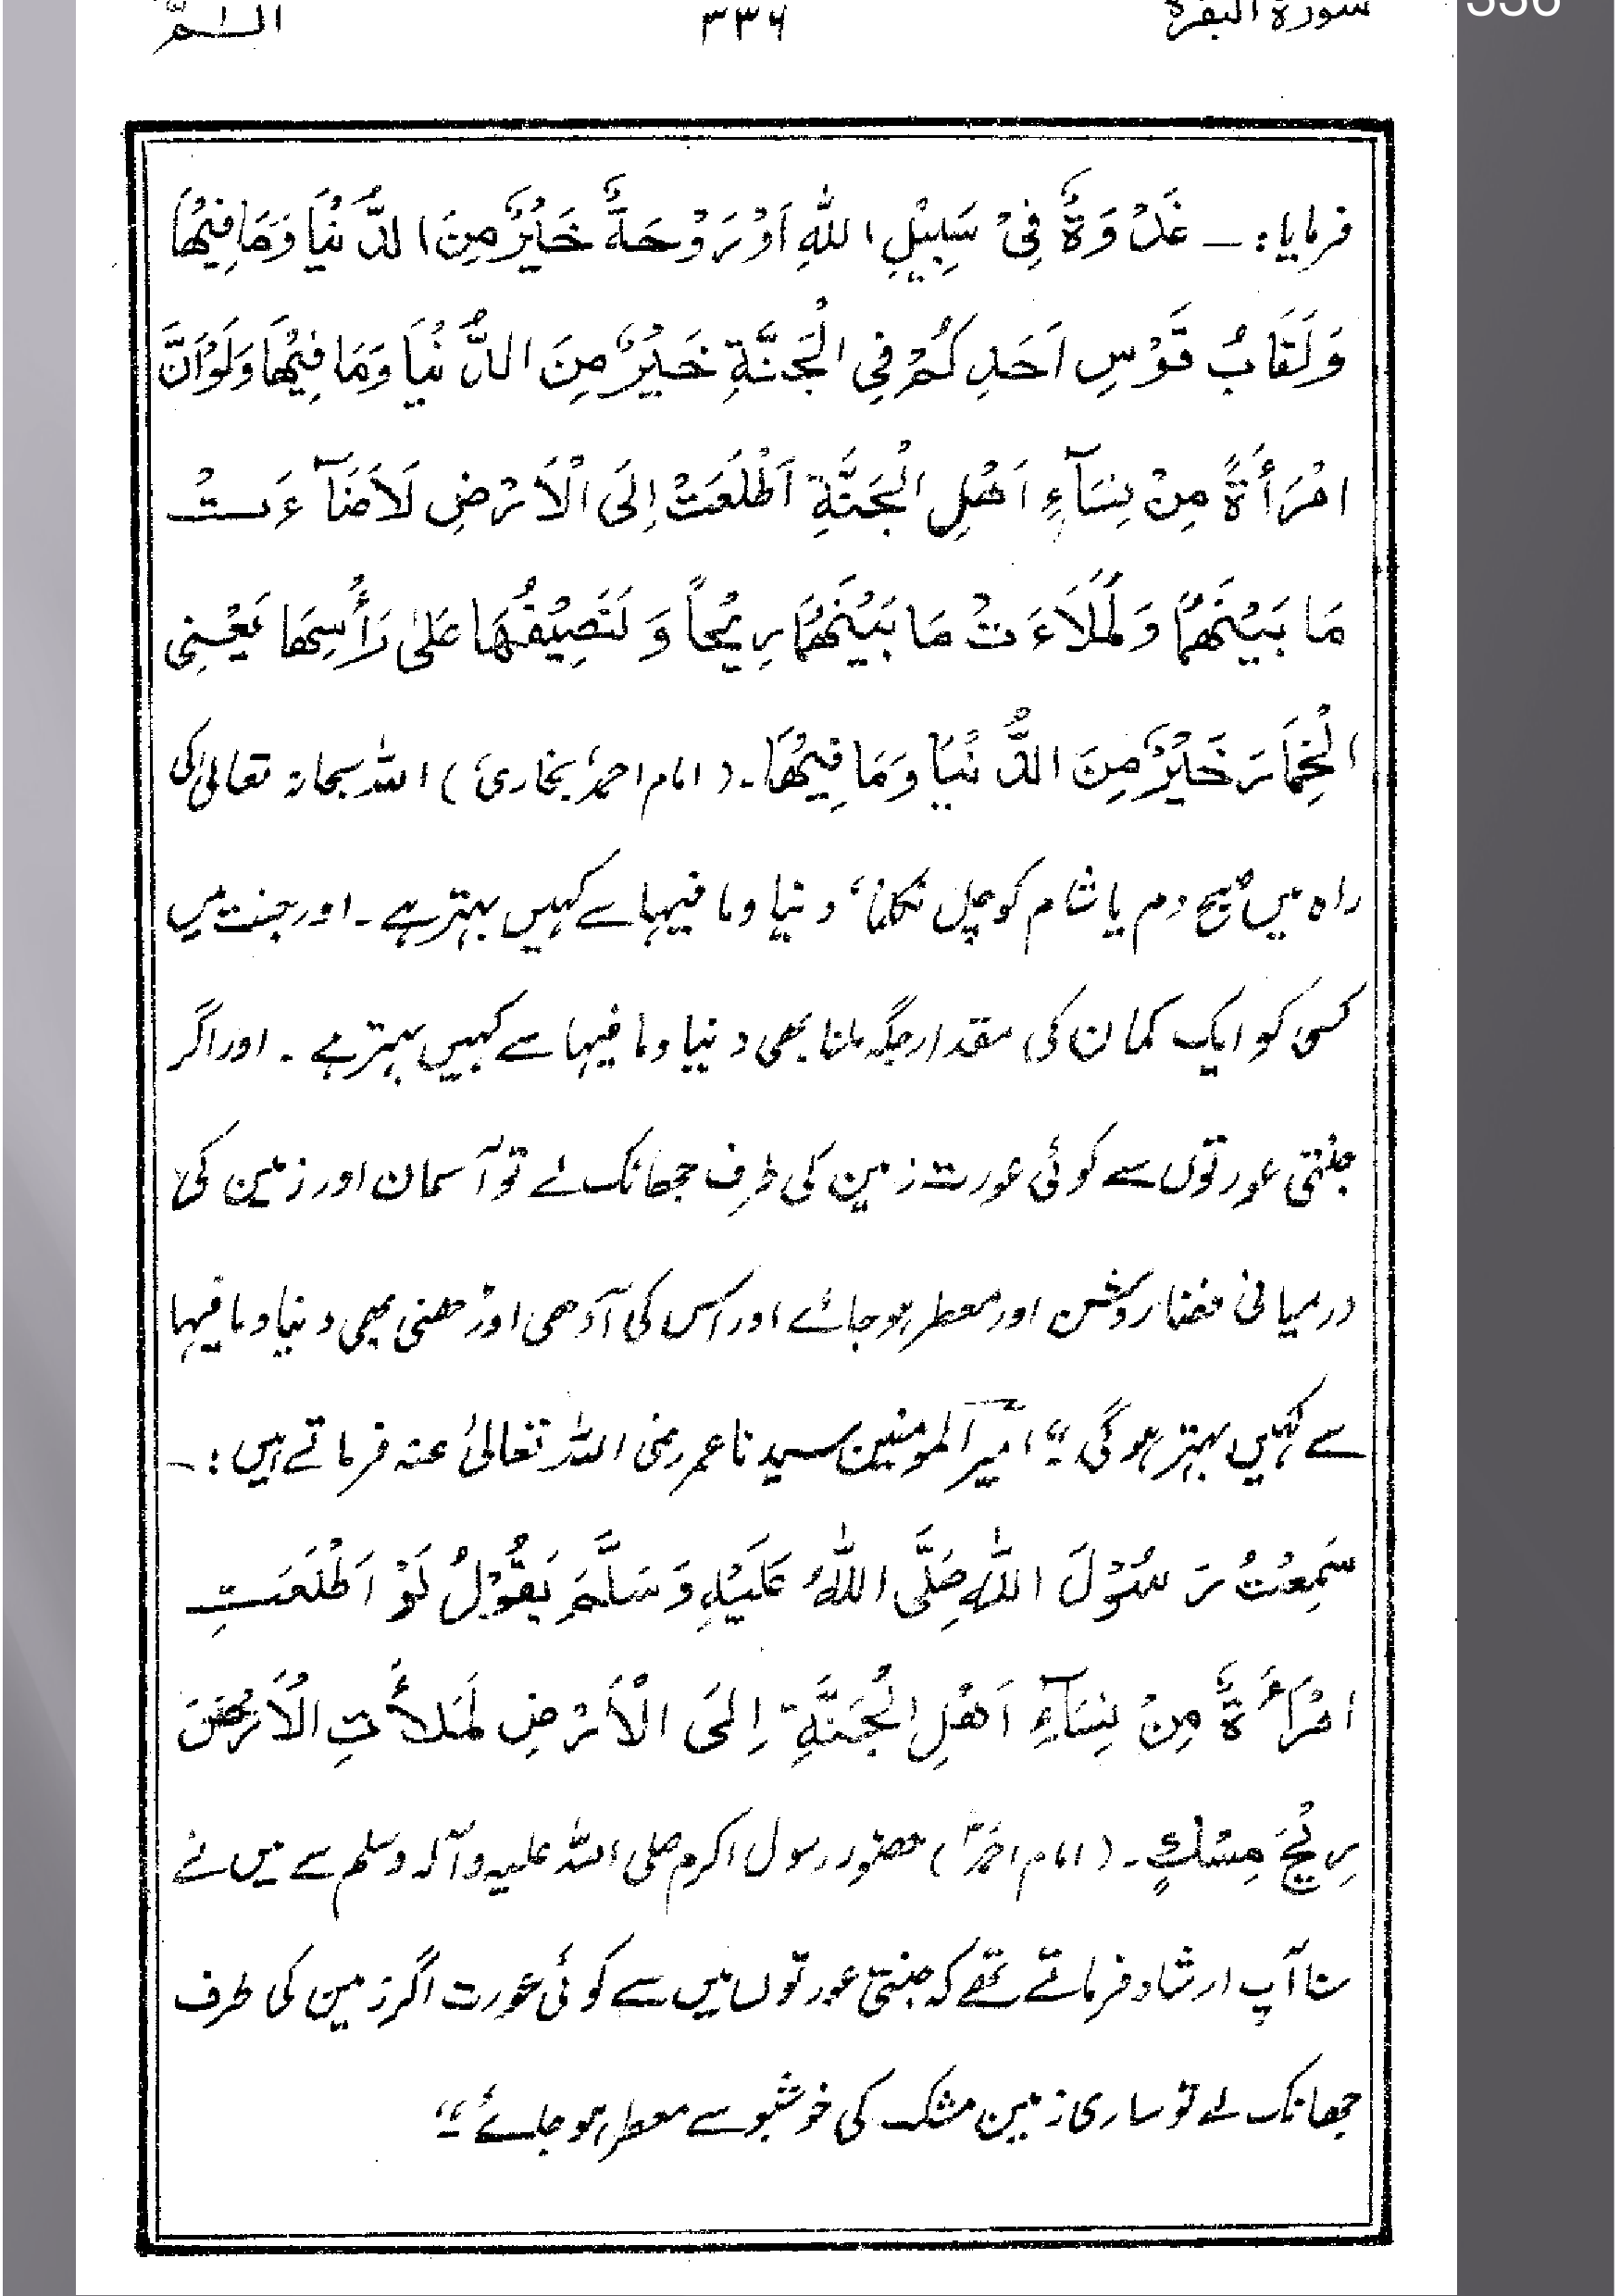 سورۃ البقرۃ ۳۳۶ الٓـمّٓ
336
فرمایا: ــ غَدْوَةٌ فِیْ سَبِیْلِ اللّٰهِ اَوْرَوْحَةٌ خَیْرٌ مِنَ الدُّنْیَا وَمَا فِیْهَا
وَلَقَابُ قَوْسِ اَحَدِكُمْ فِی الْجَنَّةِ خَیْرٌ مِنَ الدُّنْیَا وَمَا فِیْهَا وَلَوْاَنَّ
امْرَأَةً مِنْ نِسَآءِ اَهْلِ الْجَنَّةِ اَطْلَعَتْ اِلَی الْاَرْضِ لَاَضَآءَتْ
مَا بَیْنَهُمَا وَلَمَلَاَءَتْ مَا بَیْنَهُمَا رِیْحًا وَ لَنَصِیْفُهَا عَلٰی رَأْسِهَا یَعْنِی
الْخِمَارَ خَیْرٌ مِنَ الدُّنْیَا وَمَا فِیْهَا۔ (امام احمدؒ بخاریؒ) اللہ سبحانہ تعالیٰ کی
راہ میں صبح دم یا شام کو چل نکلنا، دنیا وما فیہا سے کہیں بہتر ہے۔ اور جنت میں
کسی کو ایک کمان کی مقدار جگہ ملنا بھی دنیا وما فیہا سے کہیں بہتر ہے۔ اور اگر
جنتی عورتوں سے کوئی عورت زمین کی طرف جھانک لے تو آسمان اور زمین کی
درمیانی فضا روشن اور معطر ہو جائے اور اس کی آدھی اوڑھنی بھی دنیا وما فیہا
سے کہیں بہتر ہوگی۔“ امیر المومنین سیدنا عمر رضی اللہ تعالیٰ عنہ فرماتے ہیں: ــ
سَمِعْتُ رَسُوْلَ اللّٰهِ صَلَّی اللّٰهُ عَلَیْهِ وَسَلَّمَ یَقُوْلُ لَوْ اَطْلَعَتِ
امْرَأَةٌ مِنْ نِسَآءِ اَهْلِ الْجَنَّةِ اِلَی الْاَرْضِ لَمَلَأَتِ الْاَرْضَ
رِیْحَ مِسْكٍ۔ (امام احمدؒ) حضور رسول اکرم صلی اللہ علیہ وآلہ وسلم سے میں نے
سنا آپ ارشاد فرماتے تھے کہ جنتی عورتوں میں سے کوئی عورت اگر زمین کی طرف
جھانک لے تو ساری زمین مشک کی خوشبو سے معطر ہو جائے۔“